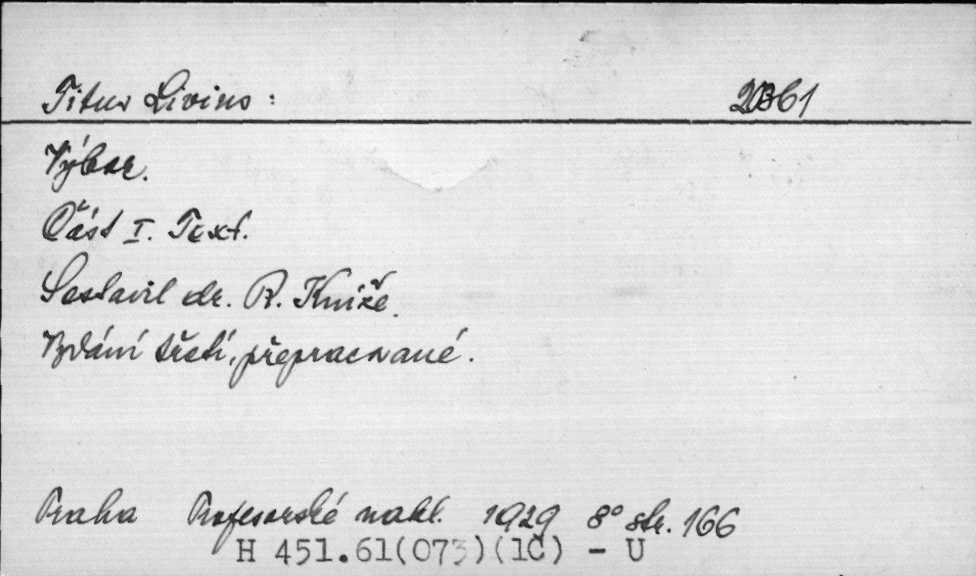 Titus Livius: 2361
Výbor.
Část I. Text.
Sestavil dr. R. Kníže.
Vydání třetí, přepracované.
Praha Profesorské nakl. 1929 8° str. 166
H 451.61(073)(1C) - U